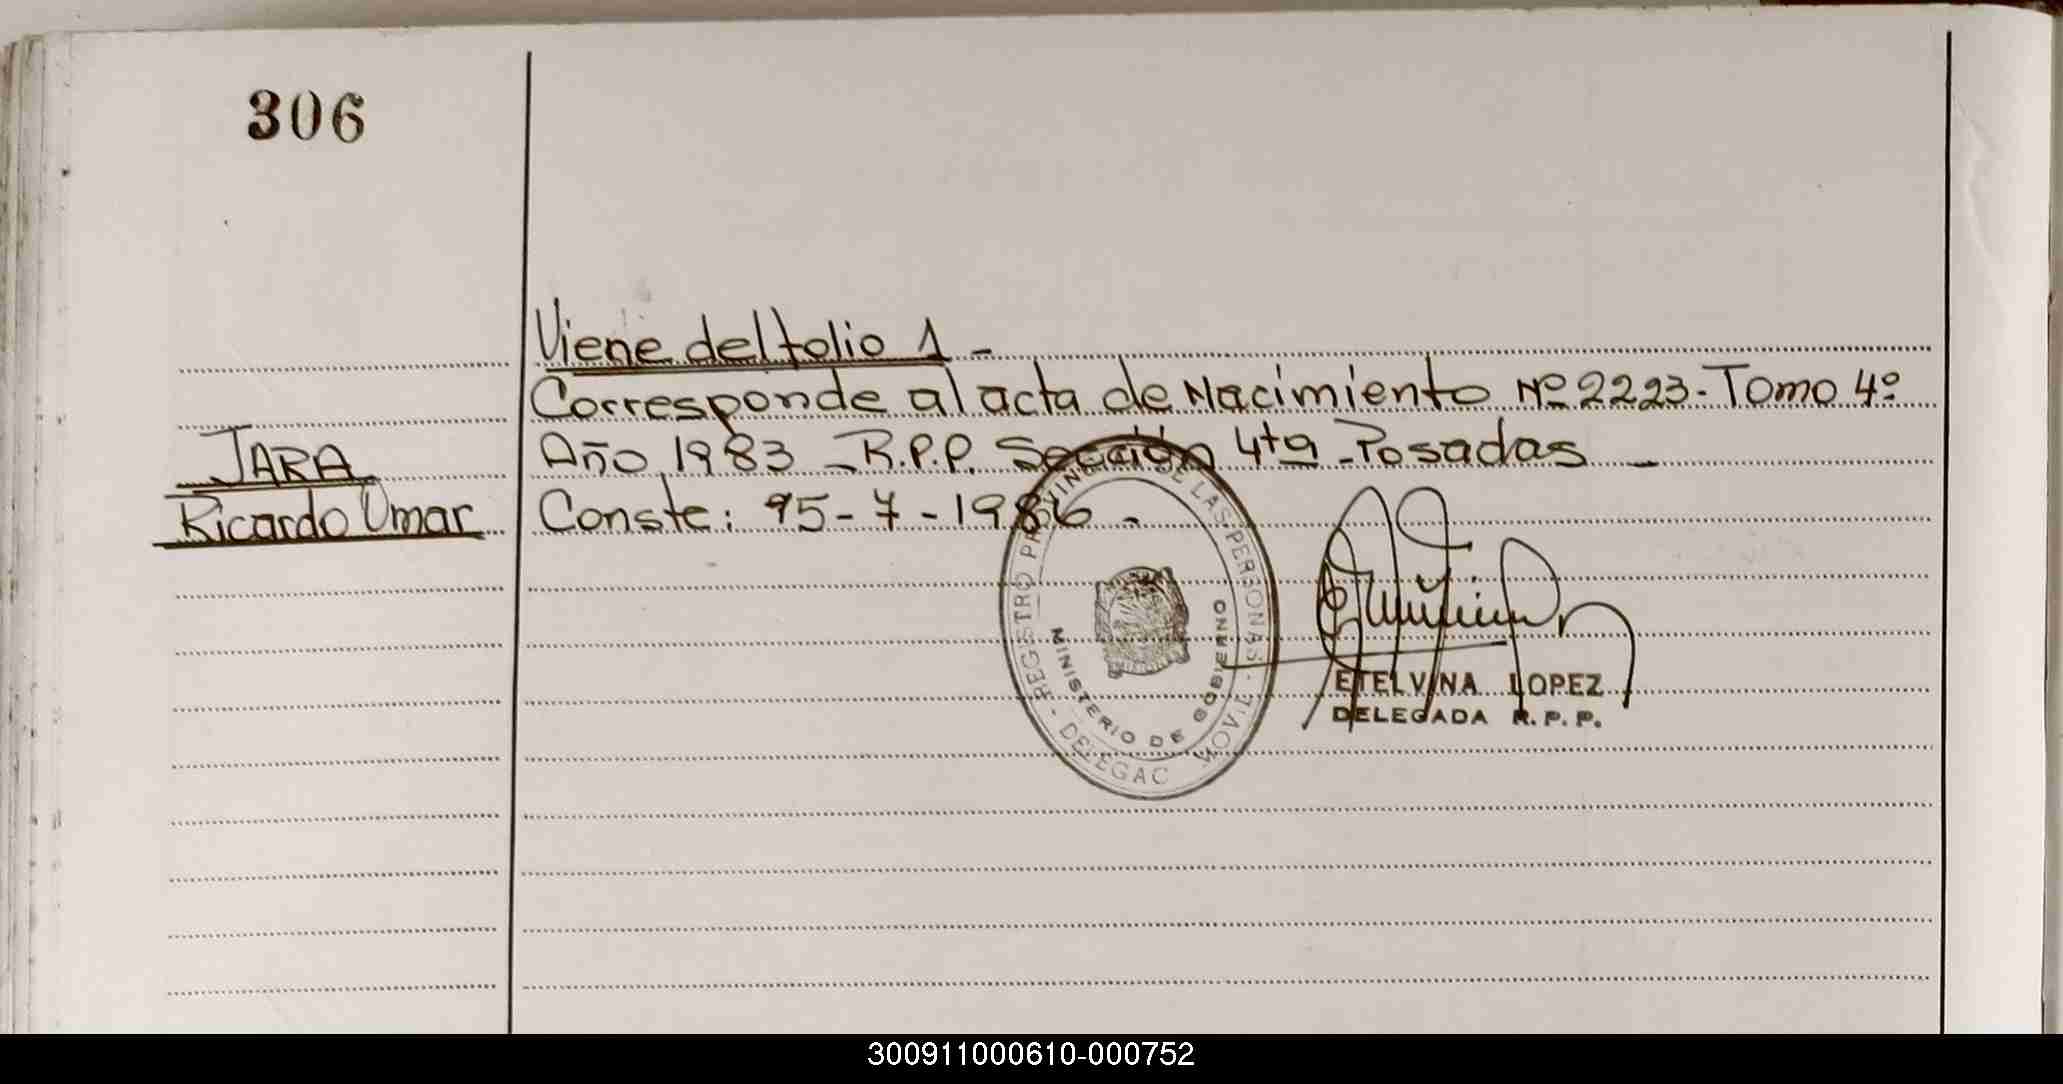 306
Viene del folio 1 -
Corresponde al acta de Nacimiento Nº 2223 - Tomo 4º
JARA
Año 1983 - R.P.P. Sección 4ta - Posadas -
Ricardo Omar
Conste: 15 - 7 - 1986 -
REGISTRO PROVINC DE LAS PERSONAS - DELEGAC MOVIL -
MINISTERIO DE GOBIERNO
ETELVINA LOPEZ
DELEGADA R.P.P.
300911000610-000752